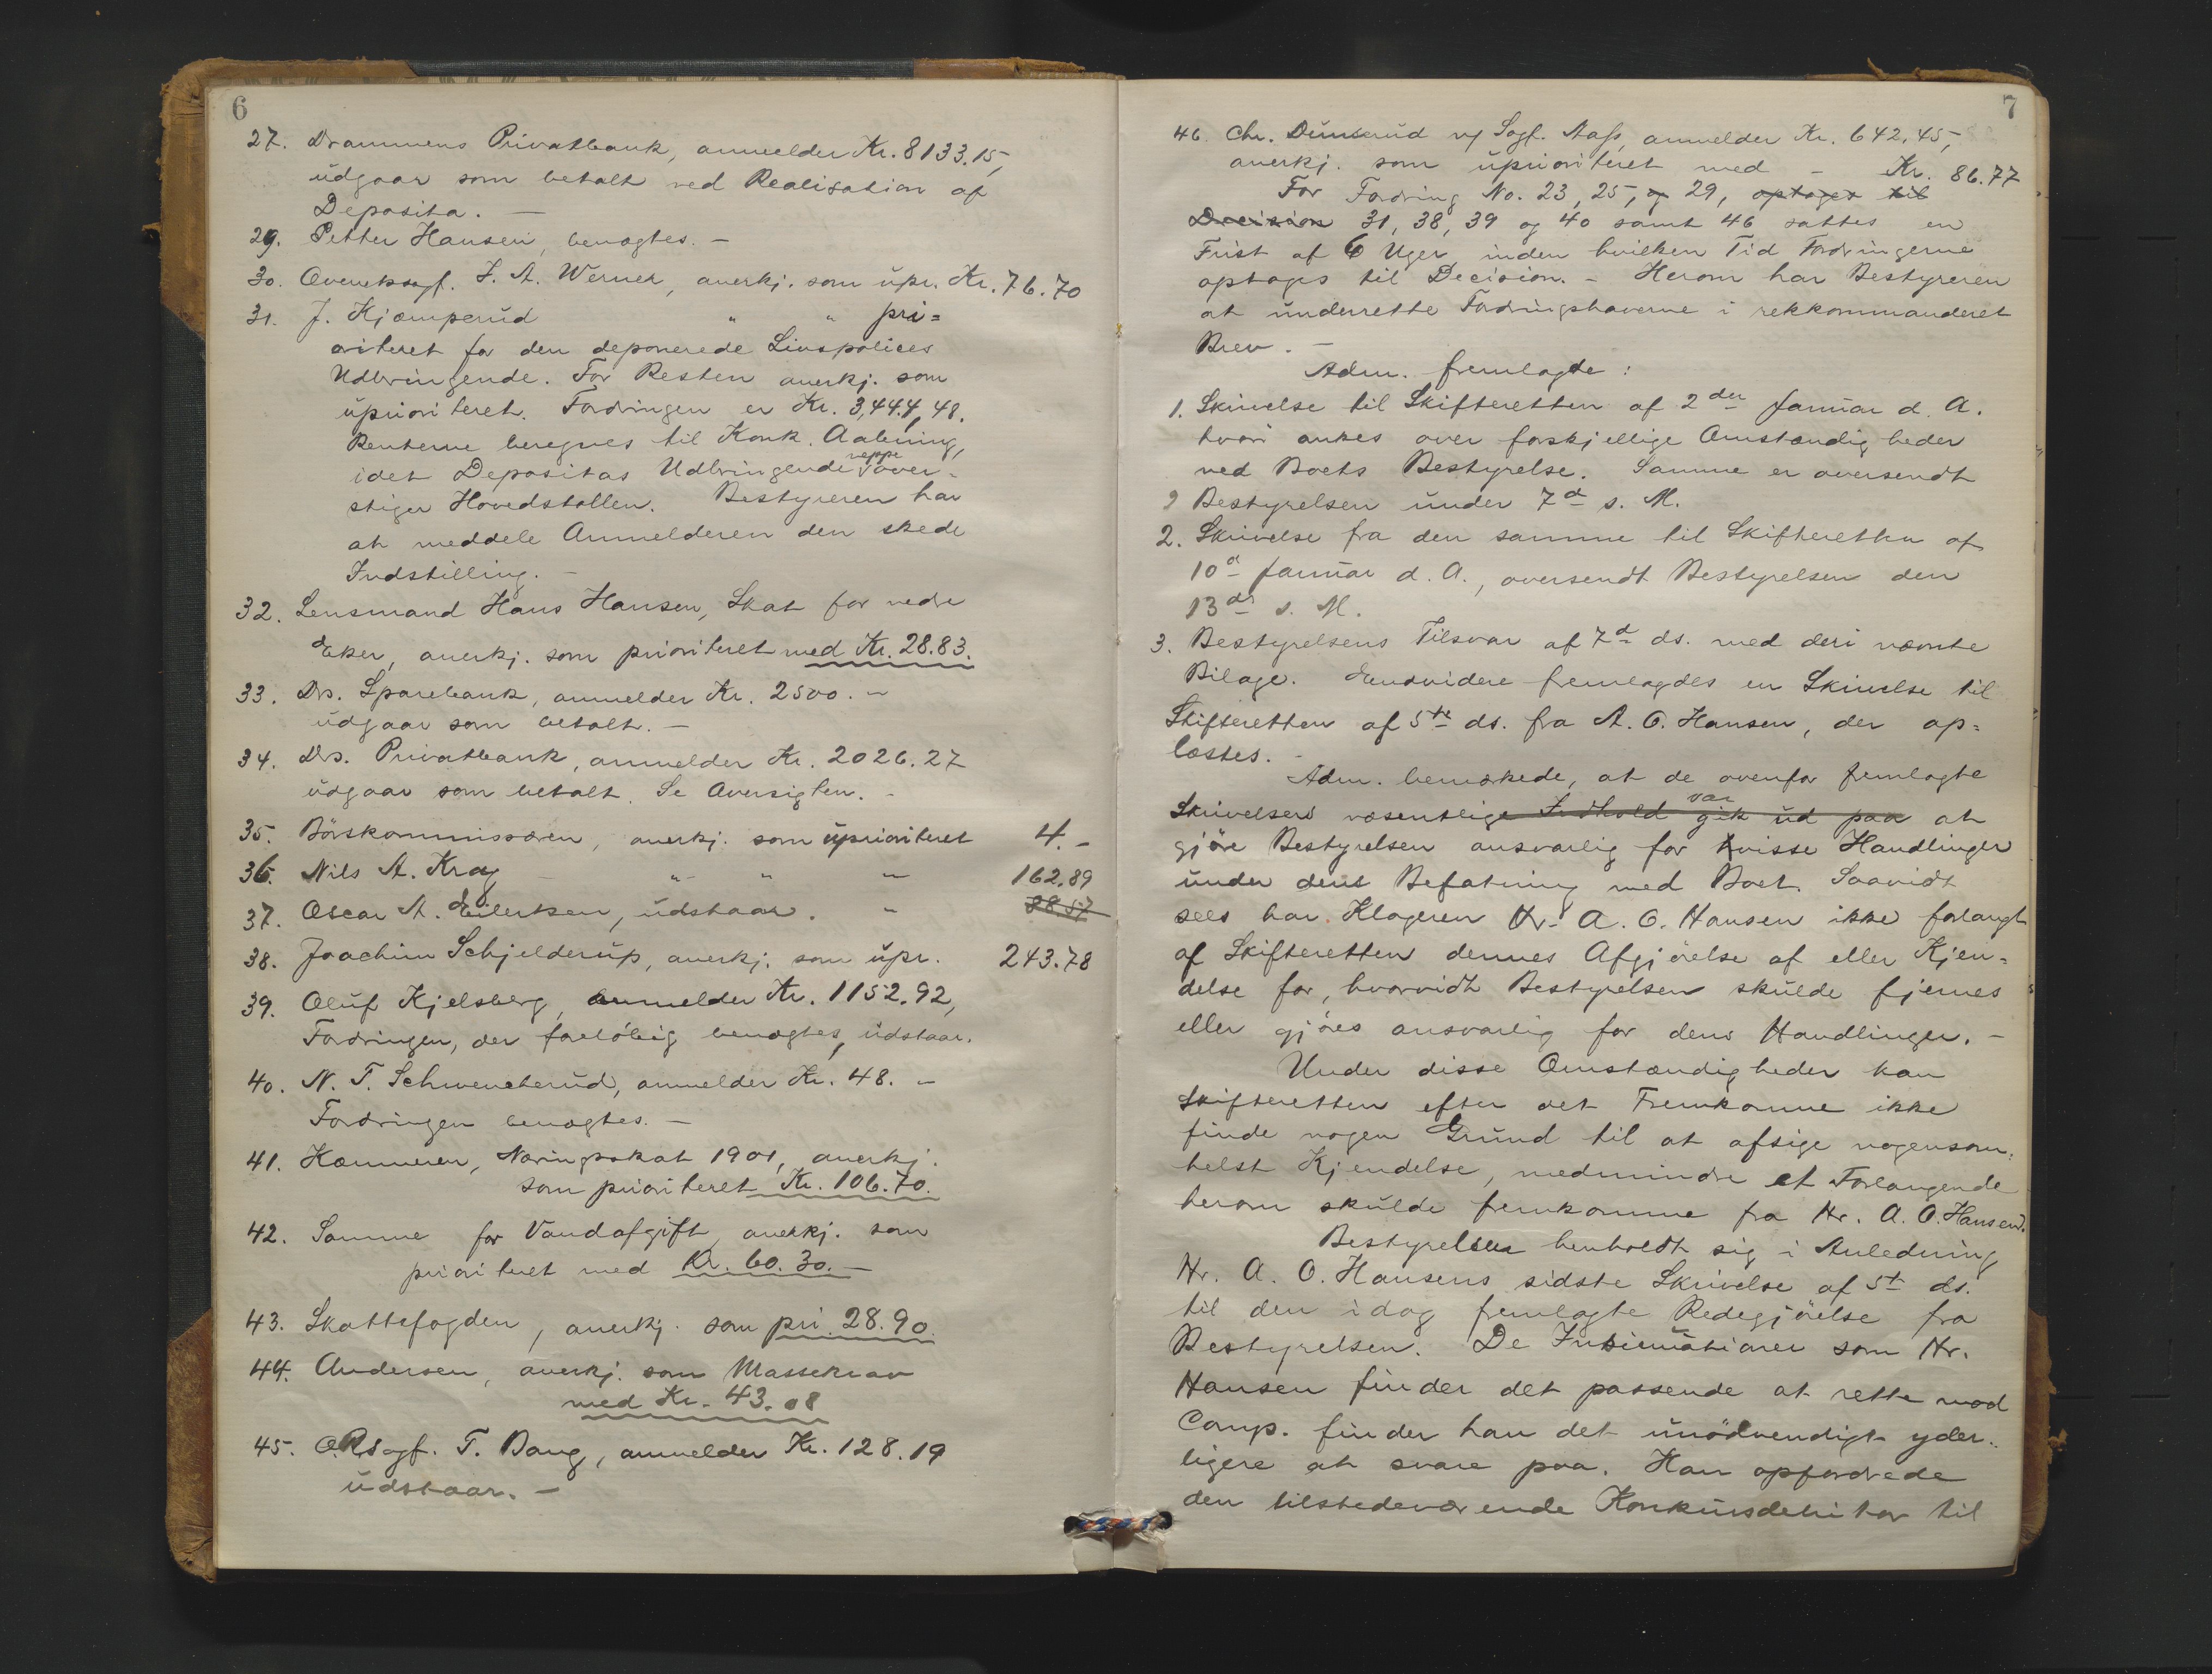 6
27. Drammens Privatbank, anmelder Kr. 8133.15,
udgaar som betalt ved Realisation af
Deposita. —
29. Petter Hansen, benægtes. —
30. Overretssagf. J. A. Werner, anerkj. som upr. Kr. 76.70
31. J. Kjæmperud " " pri=
oriteret for den deponerede Livspolices
Udbringende. For Resten anerkj. som
uprioriteret. Fordringen er Kr. 3,444,48.
Renterne beregnes til Konk. Aabning,
idet Depositas Udbringende neppe over-
stiger Hovedstollen. Bestyreren har
at meddele Anmelderen den skede
Indstilling. —
32. Lensmand Hans Hansen, Skat for nedre
Eker, anerkj. som prioriteret med Kr. 28.83.
33. Drs. Sparebank, anmelder Kr. 2500. —
udgaar som betalt. —
34. Drs. Privatbank, anmelder Kr. 2026.27
udgaar som betalt. Se Oversigten. —
35. Börskommissæren, anerkj. som uprioriteret 4. -
36. Nils A. Krag — " " — 162.89
37. Oscar A. Eilertsen, udstaar. — 28.57
38. Joachim Schjelderup, anerkj. som upr. 243.78
39. Oluf Kjelsberg, anmelder Kr. 1152.92,
Fordringen, der foreløbig benægtes, udstaar.
40. N. T. Schwencherud, anmelder Kr. 48. —
Fordringen benægtes. —
41. Kæmneren, Næringsskat 1901, anerkj.
som prioriteret Kr. 106.70.
42. Samme for Vandafgift anerkj. som
prioriteret med Kr. 60.30. —
43. Skattefogden, anerkj. som pri. 28.90.
44. Andersen, anerkj. som Massekrav
med Kr. 43.08
45. O.R.sagf. T. Bang, anmelder Kr. 128.19
udstaar. —
7
46. Chr. v/ Sagf. anmelder Kr. 642.45,
anerkj. som uprioriteret med — Kr. 86.77
For Fordring No. 23, 25, og 29, optages til
Decision 31, 38, 39 og 40 samt 46 sattes en
Frist af 6 Uger, inden hvilken Tid Fordringerne
optages til Decision. — Herom har Bestyreren
at underrette Fordringshaverne i rekkommanderet
Brev. —
Adm. fremlagde:
1. Skrivelse til Skifteretten af 2den Januar d. A.
hvori ankes over forskjellige Omstændigheder
ved Boets Bestyrelse. Samme er oversendt
Bestyrelsen under 7d s. M.
2. Skrivelse fra den samme til Skifteretten af
10d Januar d. A., oversendt Bestyrelsen den
13de s. M.
3. Bestyrelsens Tilsvar af 7d ds. med deri nævnte
Bilage. Endvidere fremlagdes en Skrivelse til
Skifteretten af 5te ds. fra A. O. Hansen, der op=
læstes. —
Adm. bemærkede, at de ovenfor fremlagte
Skrivelsers væsentlige Indhold gik ud paa var at
gjöre Bestyrelsen ansvarlig for visse Handlinger
under dens Befatning med Boet. Saavidt
sees har Klageren Hr. A. O. Hansen ikke forlangt
af Skifteretten dennes Afgjörelse af eller Kjen=
delse for, hvorvidt Bestyrelsen skulde fjernes
eller gjöres ansvarlig for dens Handlinger. —
Under disse Omstændigheder kan
Skifteretten efter det Fremkomne ikke
finde nogen Grund til at afsige nogensom=
helst Kjendelse, medmindre et Forlangende
herom skulde fremkomme fra Hr. A. O. Hansen.
Bestyrelsen henholdt sig i Anledning
Hr. A. O. Hansens sidste Skrivelse af 5t ds.
til den idag fremlagte Redegjörelse fra
Bestyrelsen. De Insinuationer som Hr.
Hansen finder det passende at rette mod
Comp. finder han det unödvendigt yder=
ligere at svare paa. Han opfordrede
den tilstedeværende Konkursdebitor til